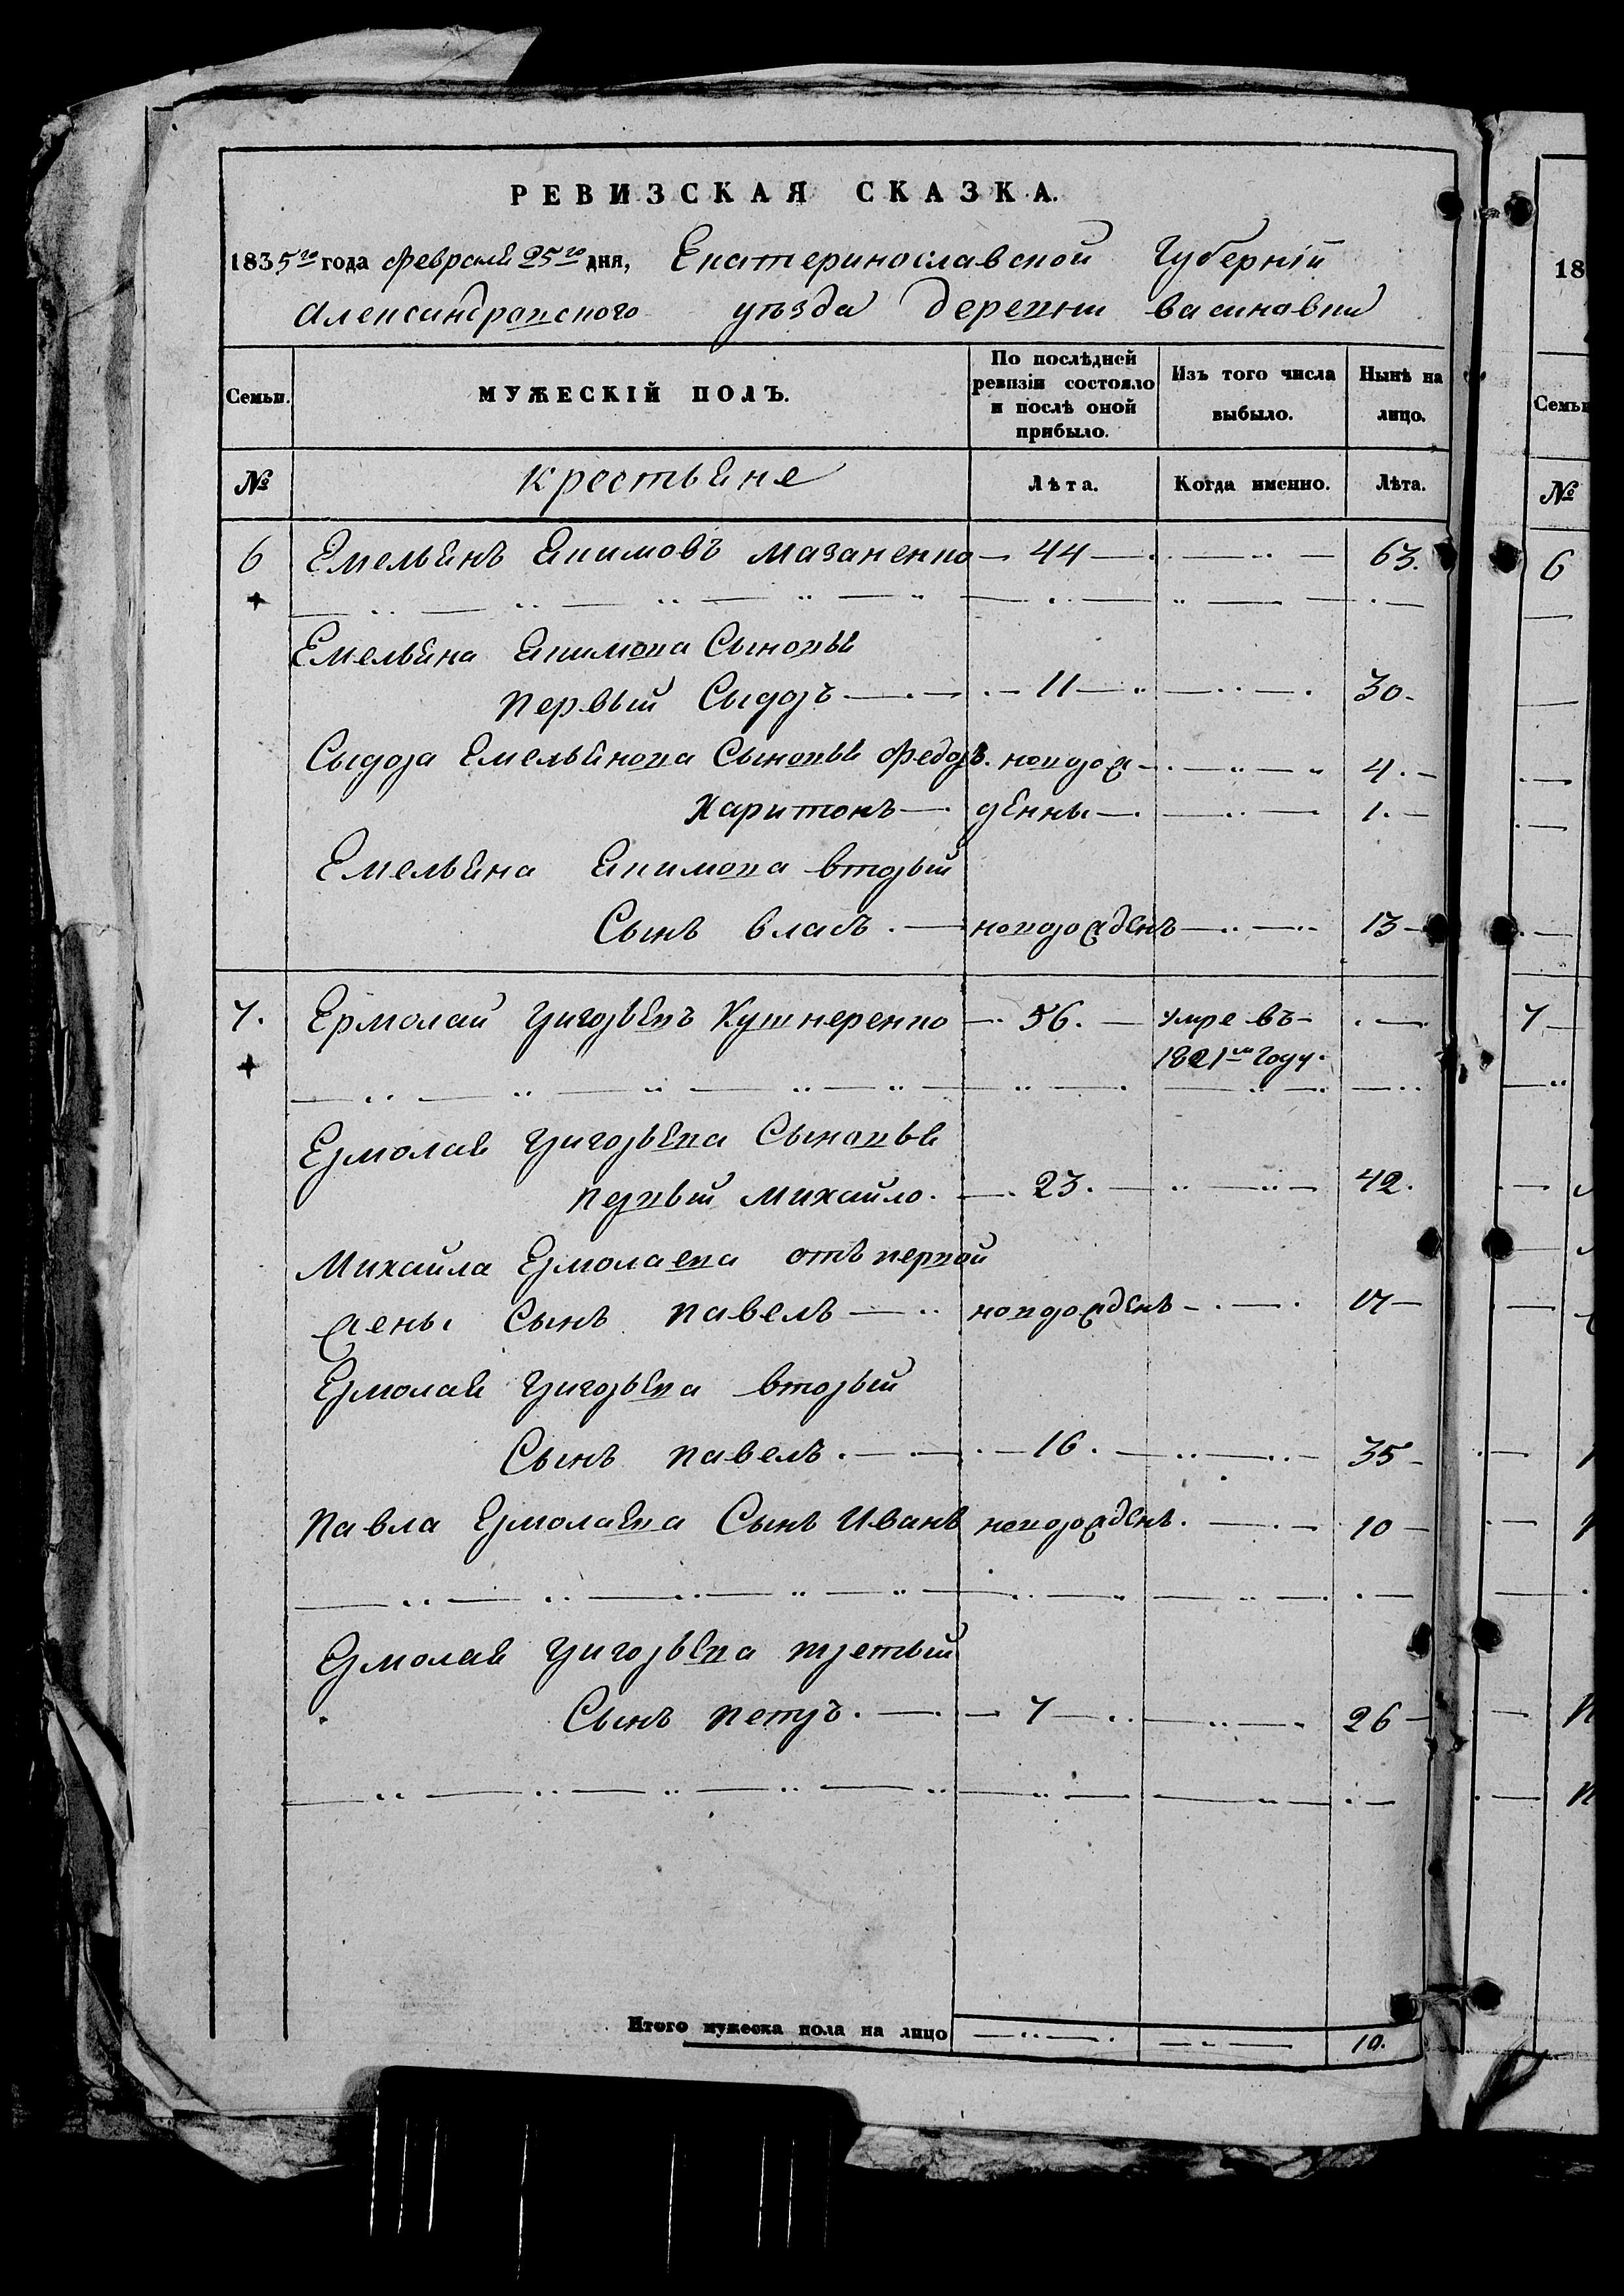 РЕВИЗСКАЯ СКАЗКА.
1835го года февраля 25го дня, Екатеринославской Губерніи
Александровского уѣзда деревни васиновки
Семьи. МУЖЕСКІЙ ПОЛЪ. По послѣдней ревизіи состояло и послѣ оной прибыло. Изъ того числа выбыло. Нынѣ на лицо.
№ крестьяне Лѣта. Когда именно. Лѣта.
6 Емельянъ Якимовъ мазаненко 44 63.
Емельяна Якимова Сыновья
первый Сыдоръ 11 30
Сыдора Емельянова Сыновья Федоръ новорож 4.
Харитонъ денны 1.
Емельяна Якимова вторый
Сынъ власъ новорожденъ 13
7. Ермолай григорьевъ Кушнеренко 56. умре въ
1821м году.
Ермолая григорьева Сыновья
первый михайло. 23. 42.
Михайла Ермолаева отъ первой
жены Сынъ павелъ новорожденъ 17
Ермолая григорьева вторый
Сынъ павелъ. 16. 35
павла Ермолаева Сынъ Иванъ новорожденъ. 10
Ермолая григорьева третьий
Сынъ петръ. 7 26
Итого мужеска пола на лицо 10.
18
Семьи
№
6
7